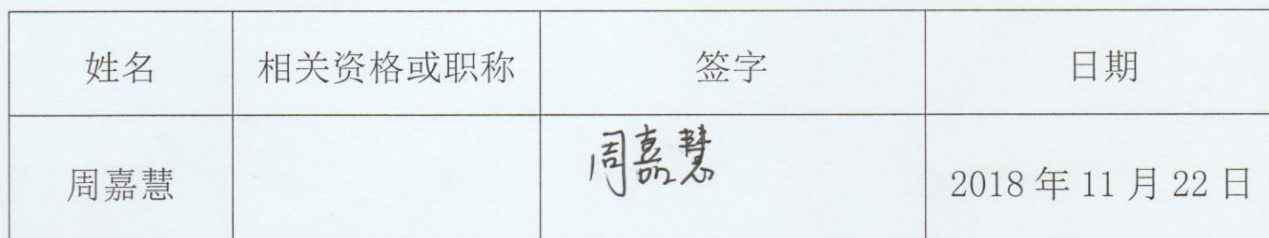 姓名 相关资格或职称 签字 日期
周嘉慧 周嘉慧 2018 年 11 月 22 日